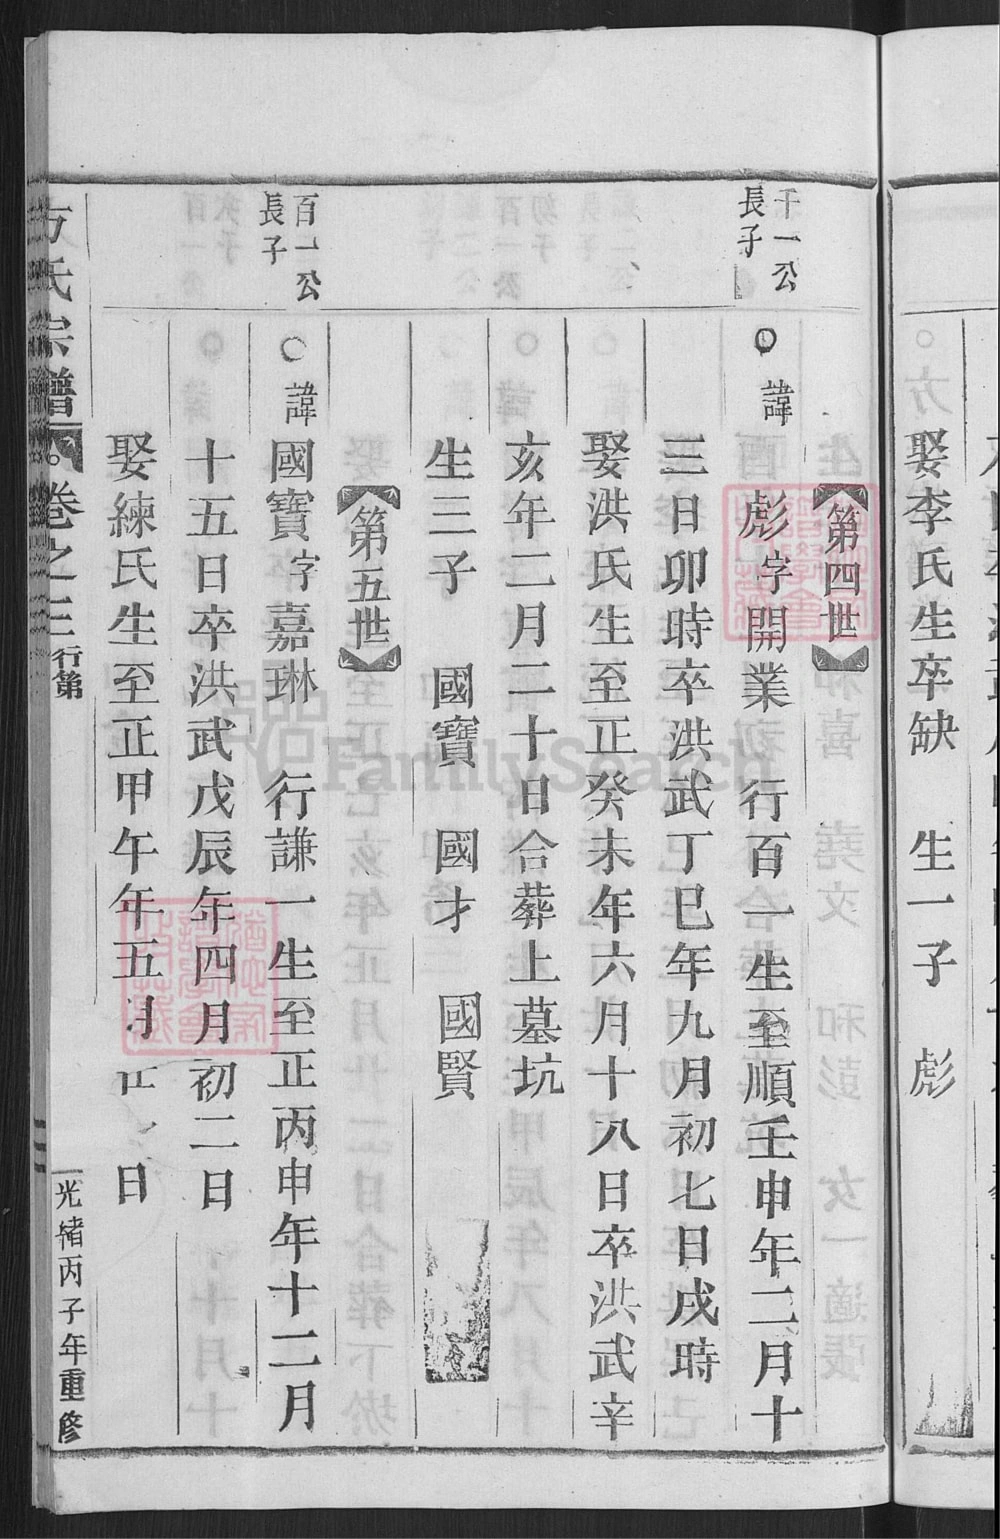 娶李氏生卒缺　生一子　彪
【第四世】
千一公
長子
○諱彪字開業　行百一生至順壬申年二月十
三日卯時卒洪武丁巳年九月初七日戌時
娶洪氏生至正癸未年六月十八日卒洪武辛
亥年二月二十日合葬上墓坑
生三子　國寶　國才　國賢
【第五世】
百一公
長子
○諱國寶字嘉琳　行謙一生至正丙申年十二月
十五日卒洪武戊辰年四月初二日
娶練氏生至正甲午年五月　日
方氏宗譜　卷之三行第
光緒丙子年重修
FamilySearch